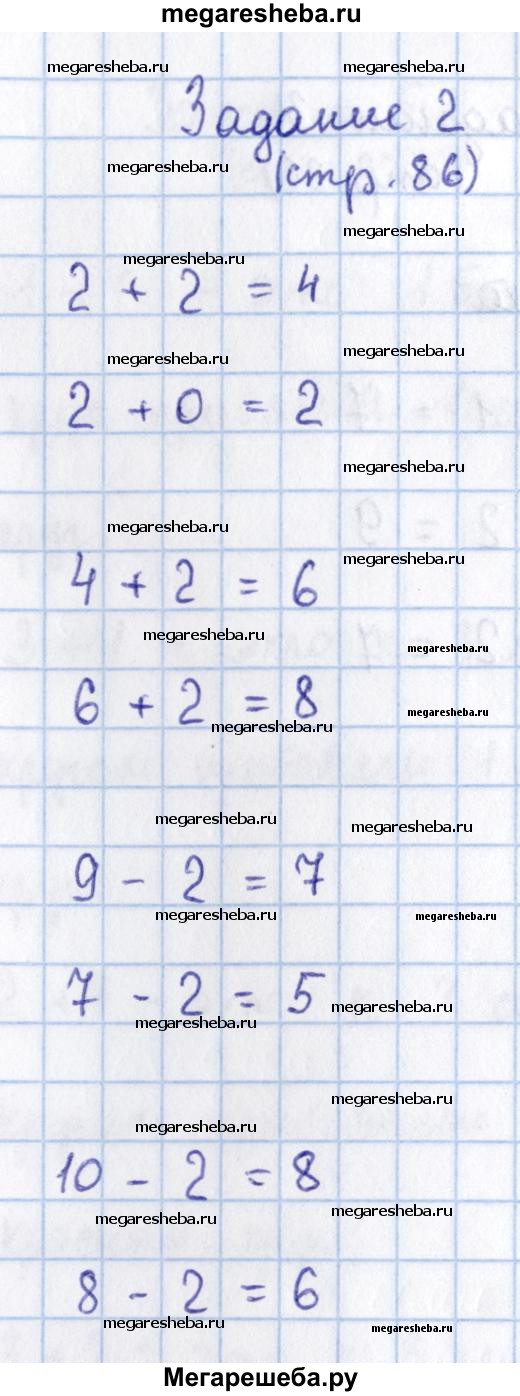 megaresheba.ru
megaresheba.ru megaresheba.ru
Задание 2
megaresheba.ru (стр. 86)
megaresheba.ru
megaresheba.ru
2 + 2 = 4
megaresheba.ru megaresheba.ru
2 + 0 = 2
megaresheba.ru
megaresheba.ru
megaresheba.ru
4 + 2 = 6
megaresheba.ru megaresheba.ru
6 + 2 = 8 megaresheba.ru
megaresheba.ru
megaresheba.ru megaresheba.ru
9 - 2 = 7
megaresheba.ru megaresheba.ru
7 - 2 = 5 megaresheba.ru
megaresheba.ru
megaresheba.ru
megaresheba.ru
10 - 2 = 8
megaresheba.ru megaresheba.ru
8 - 2 = 6
megaresheba.ru megaresheba.ru
Мегарешеба.ру